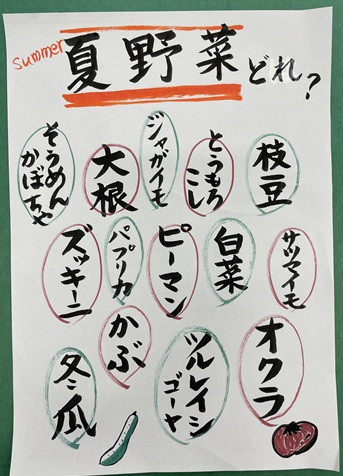 summer
夏野菜どれ?
枝豆
とうもろこし
ジャガイモ
大根
そうめんかぼちゃ
サツマイモ
白菜
ピーマン
パプリカ
ズッキーニ
オクラ
ツルレイシ
ゴーヤ
かぶ
冬瓜